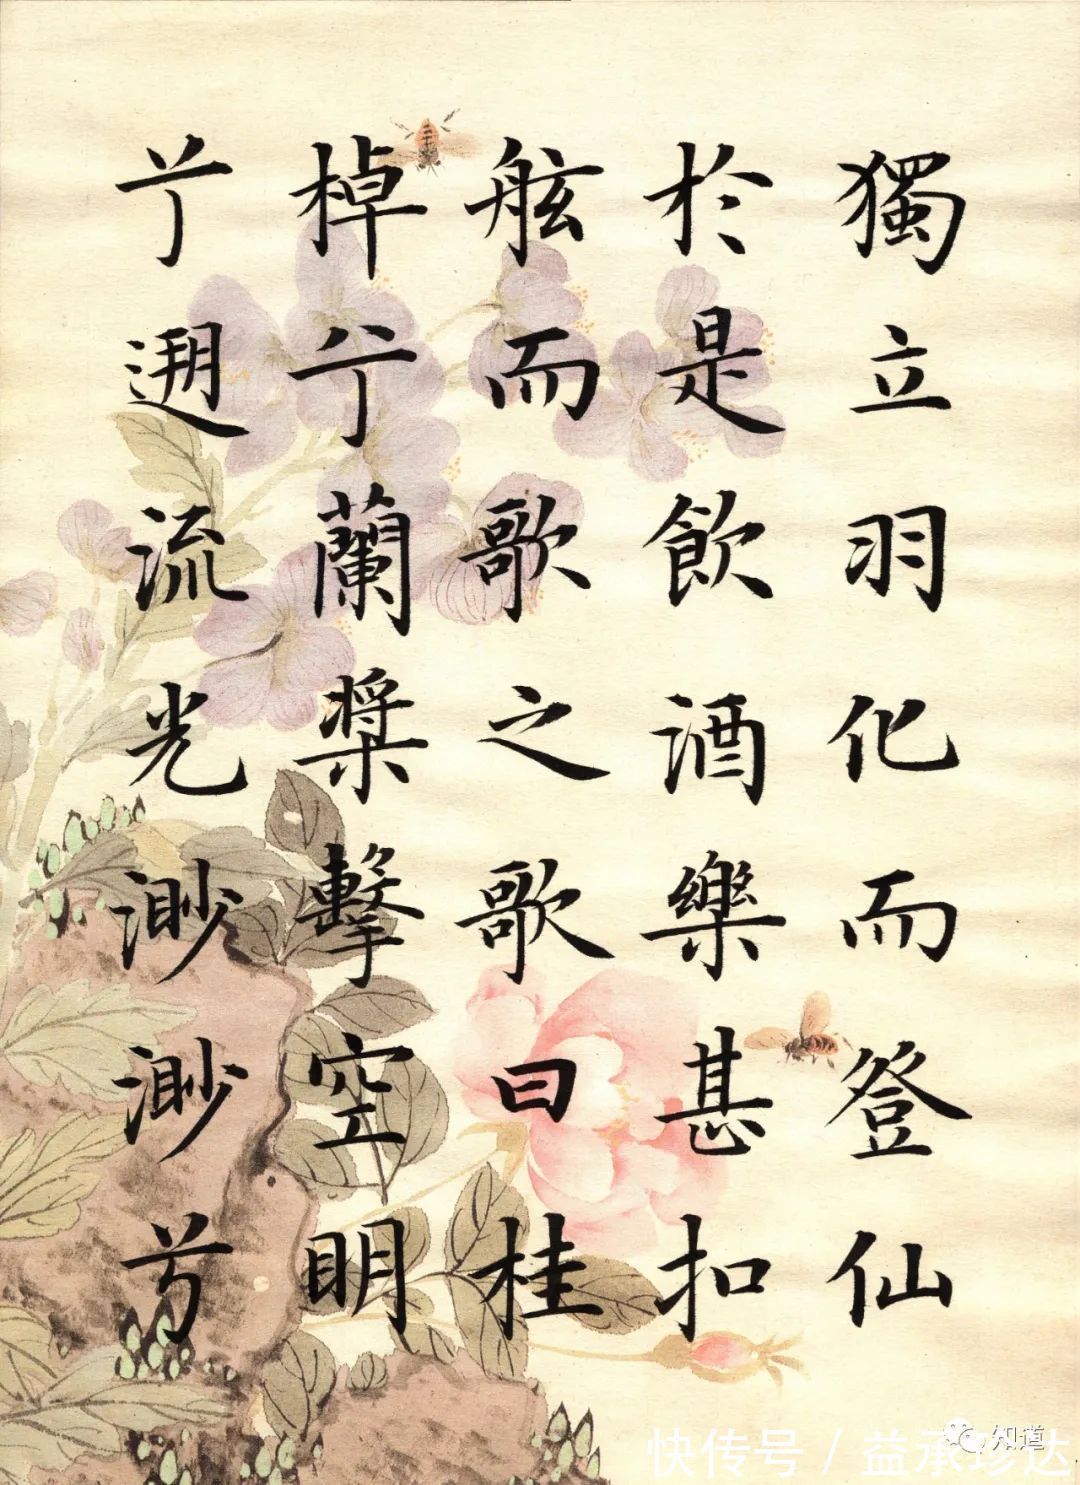 獨立羽化而登仙
於是飲酒樂甚扣
舷而歌之歌曰桂
棹兮蘭槳擊空明
兮遡流光渺渺兮
知道
快传号 / 益承珍达